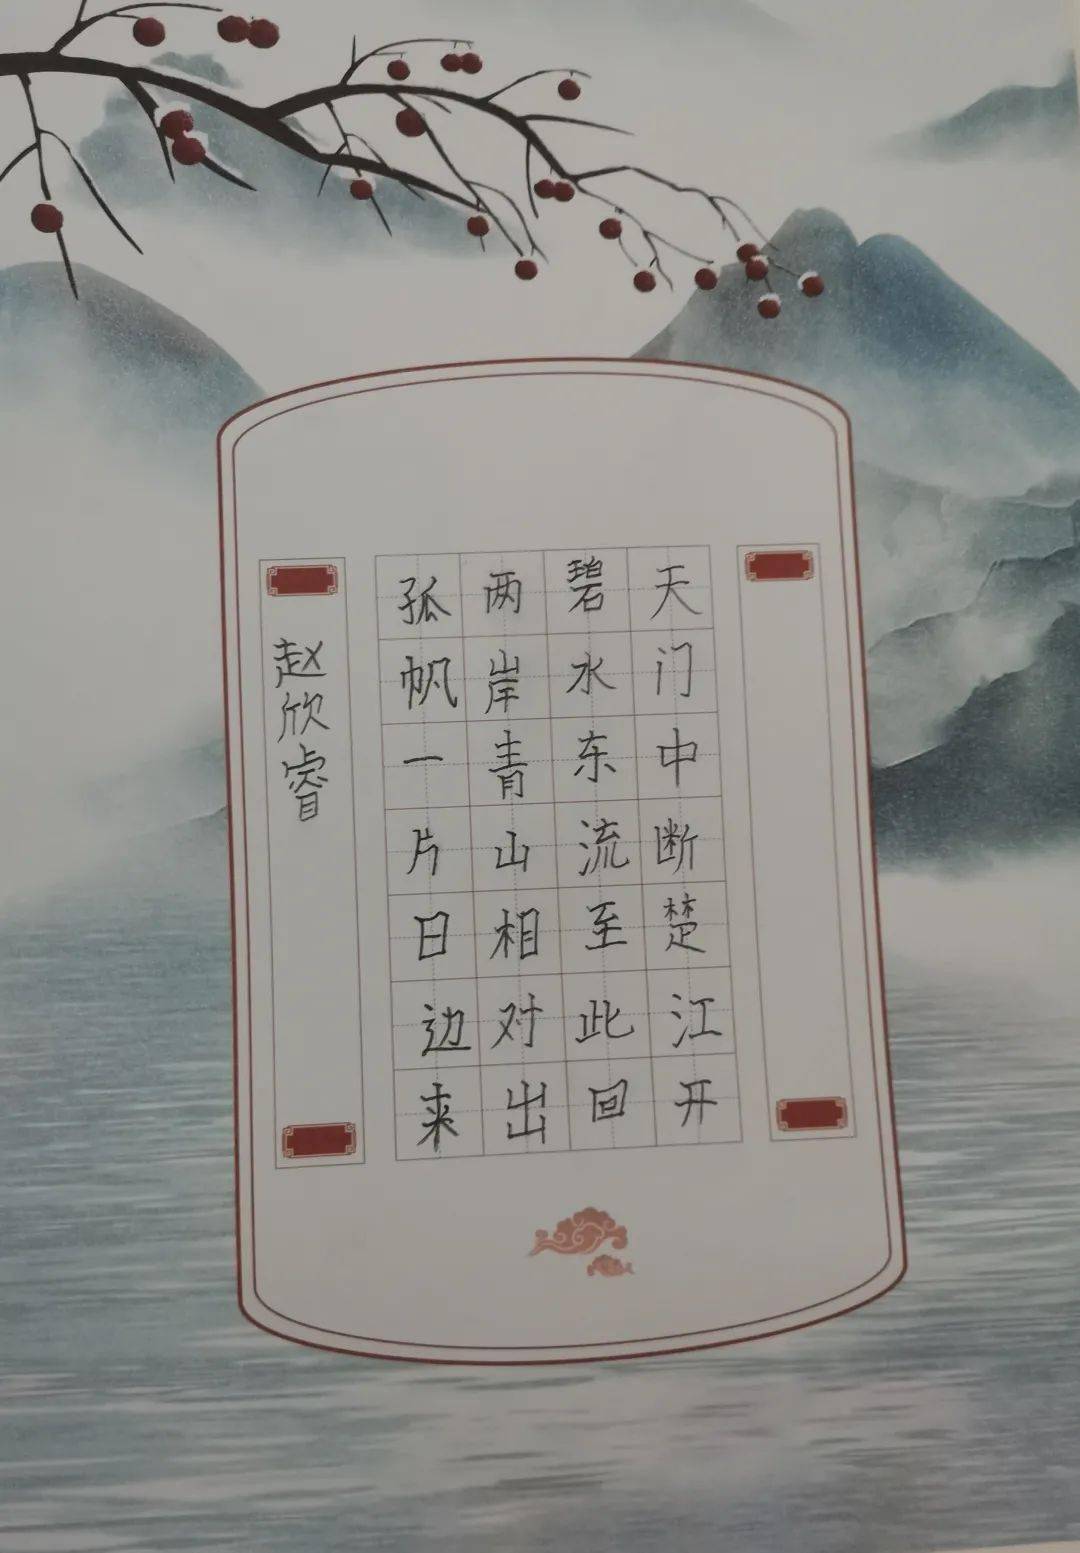 天门中断楚江开
碧水东流至此回
两岸青山相对出
孤帆一片日边来
赵欣睿